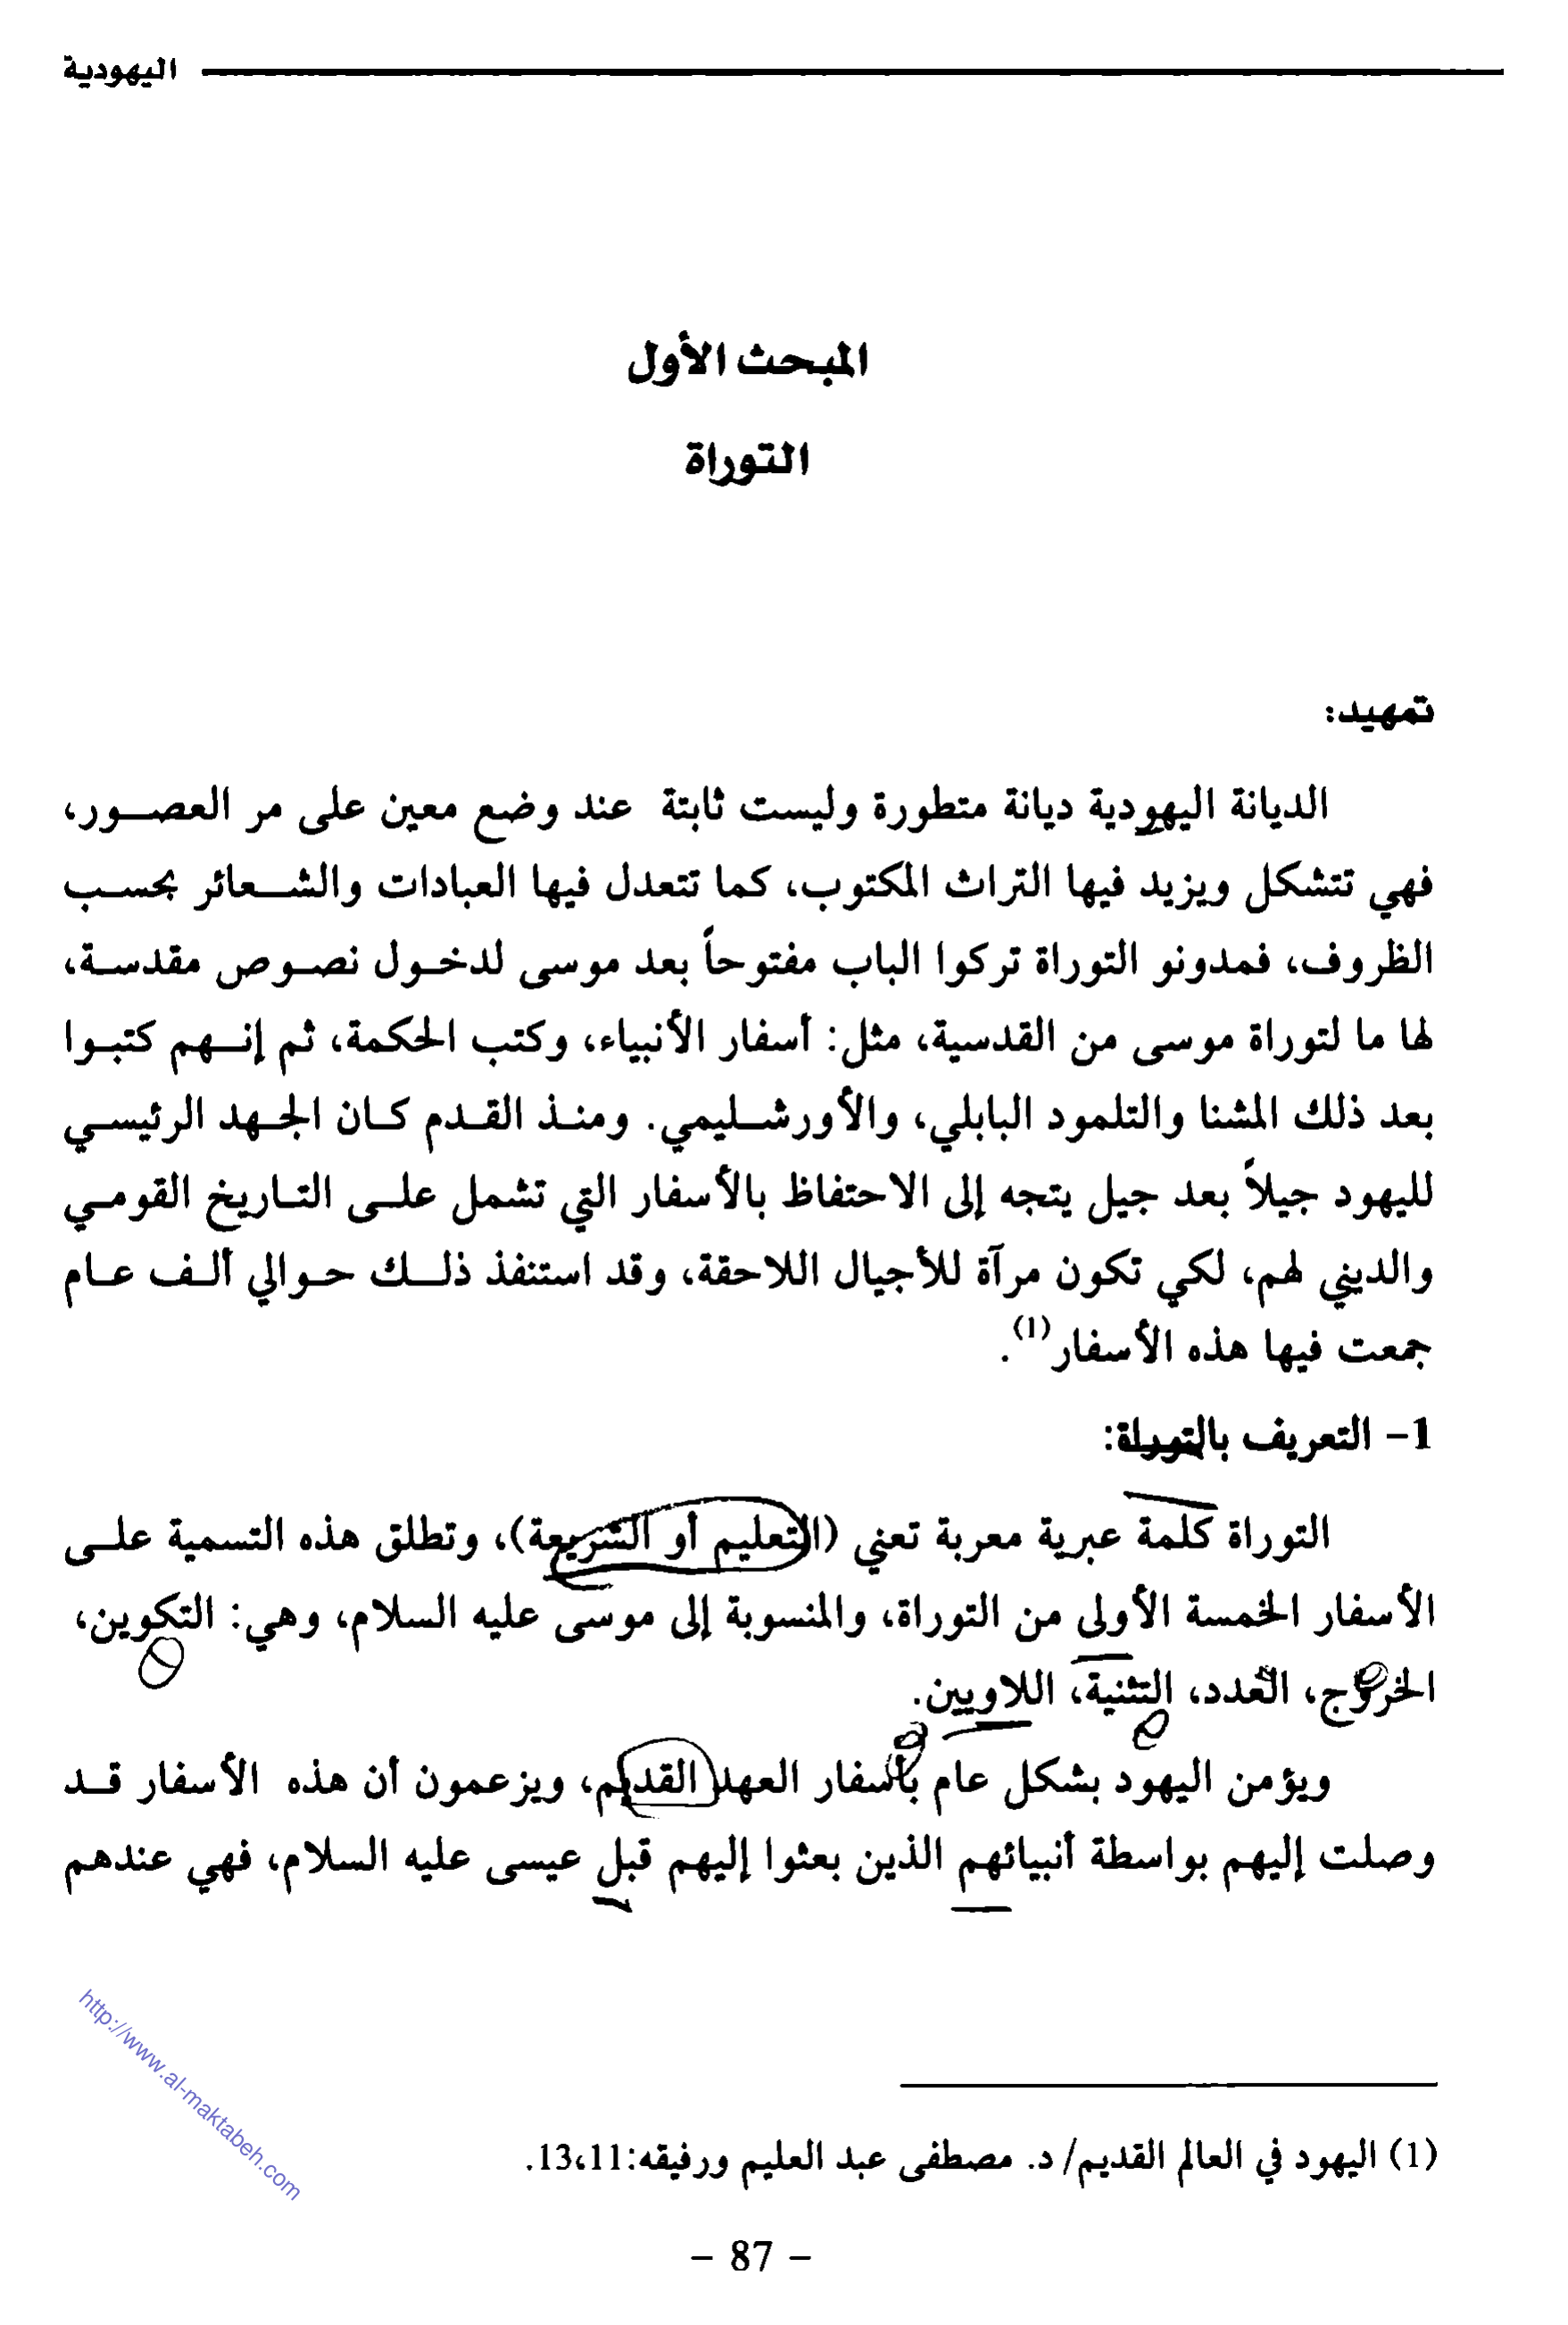 اليهودية
المبحث الأول
التوراة
تمهيد:
الديانة اليهودية ديانة متطورة وليست ثابتة عند وضع معين على مر العصور،
فهي تتشكل ويزيد فيها التراث المكتوب، كما تتعدل فيها العبادات والشعائر بحسب
الظروف، فمدونو التوراة تركوا الباب مفتوحاً بعد موسى لدخول نصوص مقدسة،
لها ما لتوراة موسى من القدسية، مثل: أسفار الأنبياء، وكتب الحكمة، ثم إنهم كتبوا
بعد ذلك المشنا والتلمود البابلي، والأورشليمي. ومنذ القدم كان الجهد الرئيسي
لليهود جيلاً بعد جيل يتجه إلى الاحتفاظ بالأسفار التي تشمل على التاريخ القومي
والديني لهم، لكي تكون مرآة للأجيال اللاحقة، وقد استنفذ ذلك حوالي ألف عام
جمعت فيها هذه الأسفار(1).
1- التعريف بالتوراة:
التوراة كلمة عبرية معربة تعني (التعليم أو الشريعة)، وتطلق هذه التسمية على
الأسفار الخمسة الأولى من التوراة، والمنسوبة إلى موسى عليه السلام، وهي: التكوين،
الخروج، العدد، التثنية، اللاويين.
ويؤمن اليهود بشكل عام بأسفار العهد القديم، ويزعمون أن هذه الأسفار قد
وصلت إليهم بواسطة أنبيائهم الذين بعثوا إليهم قبل عيسى عليه السلام، فهي عندهم
http://www.al-maktabeh.com
(1) اليهود في العالم القديم/ د. مصطفى عبد العليم ورفيقه:11،13.
- 87 -